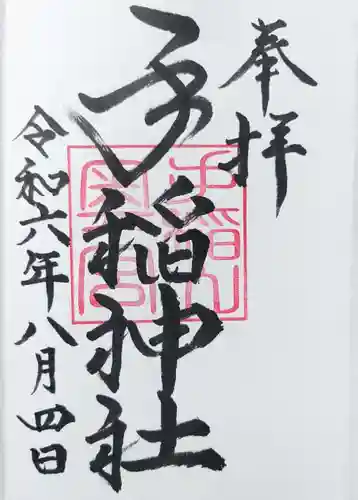 奉拝
子稲神社
令和六年八月四日